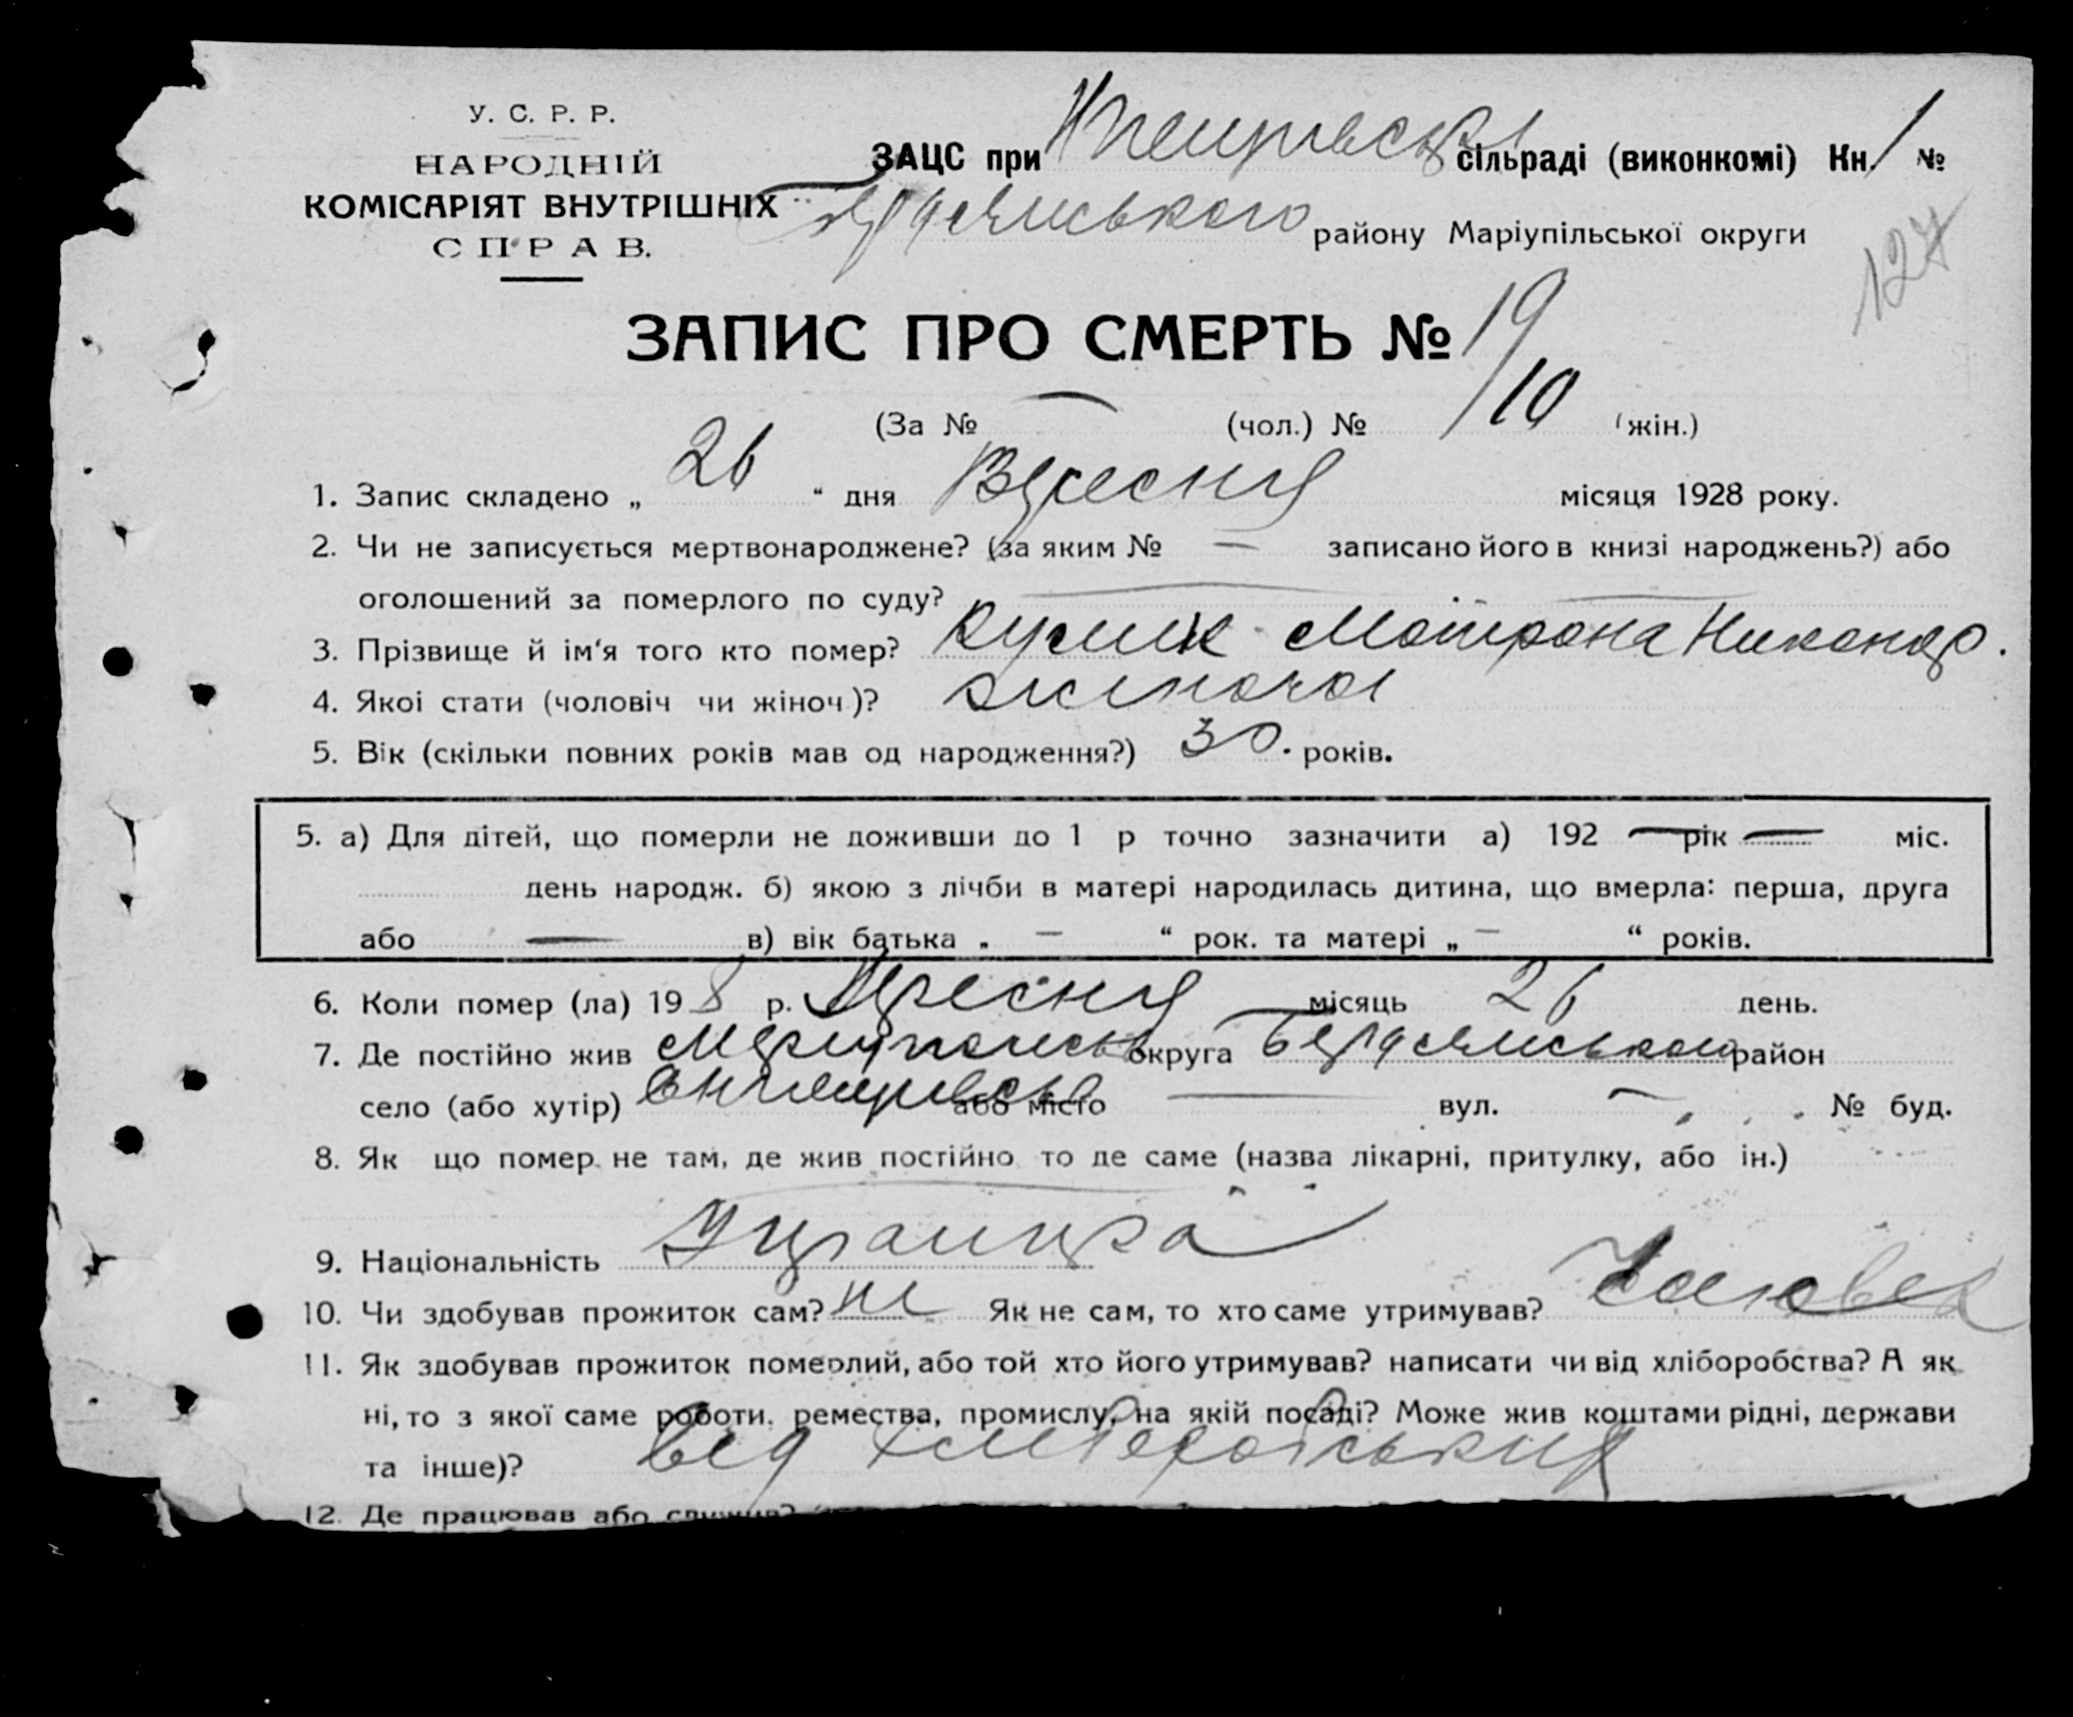 У. С. Р. Р.
НАРОДНІЙ
КОМІСАРІЯТ ВНУТРІШНІХ
СПРАВ.
ЗАЦС при сільраді (виконкомі) Кн. 1 №
району Маріупільської округи
127
ЗАПИС ПРО СМЕРТЬ № 19
(За № — (чол.) № 10 (жін.)
1. Запис складено „ 26 “ дня Вересня місяця 1928 року.
2. Чи не записується мертвонароджене? (за яким № — записано його в книзі народжень?) або
оголошений за померлого по суду? —
3. Прізвище й ім'я того кто помер? Матрона Никанор.
4. Якоі стати (чоловіч чи жіноч.)? жіночоі
5. Вік (скільки повних років мав од народження?) 30. років.
5. а) Для дітей, що померли не доживши до 1 р точно зазначити а) 192 — рік — міс.
день народж. б) якою з лічби в матері народилась дитина, що вмерла: перша, друга
або — в) вік батька „ — “ рок. та матері „ — “ років.
6. Коли помер (ла) 19 8 р. Вересня місяць 26 день.
7. Де постійно жив округа район
село (або хутір) або місто — вул. — № буд.
8. Як що помер не там, де жив постійно то де саме (назва лікарні, притулку, або ін.)
9. Національність Украинка
10. Чи здобував прожиток сам? не Як не сам, то хто саме утримував? Чоловек
11. Як здобував прожиток померлий, або той хто його утримував? написати чи від хліборобства? А як
ні, то з якої саме роботи, ремества, промислу, на якій посаді? Може жив коштами рідні, держави
та інше)? від
12. Де працював або служив?